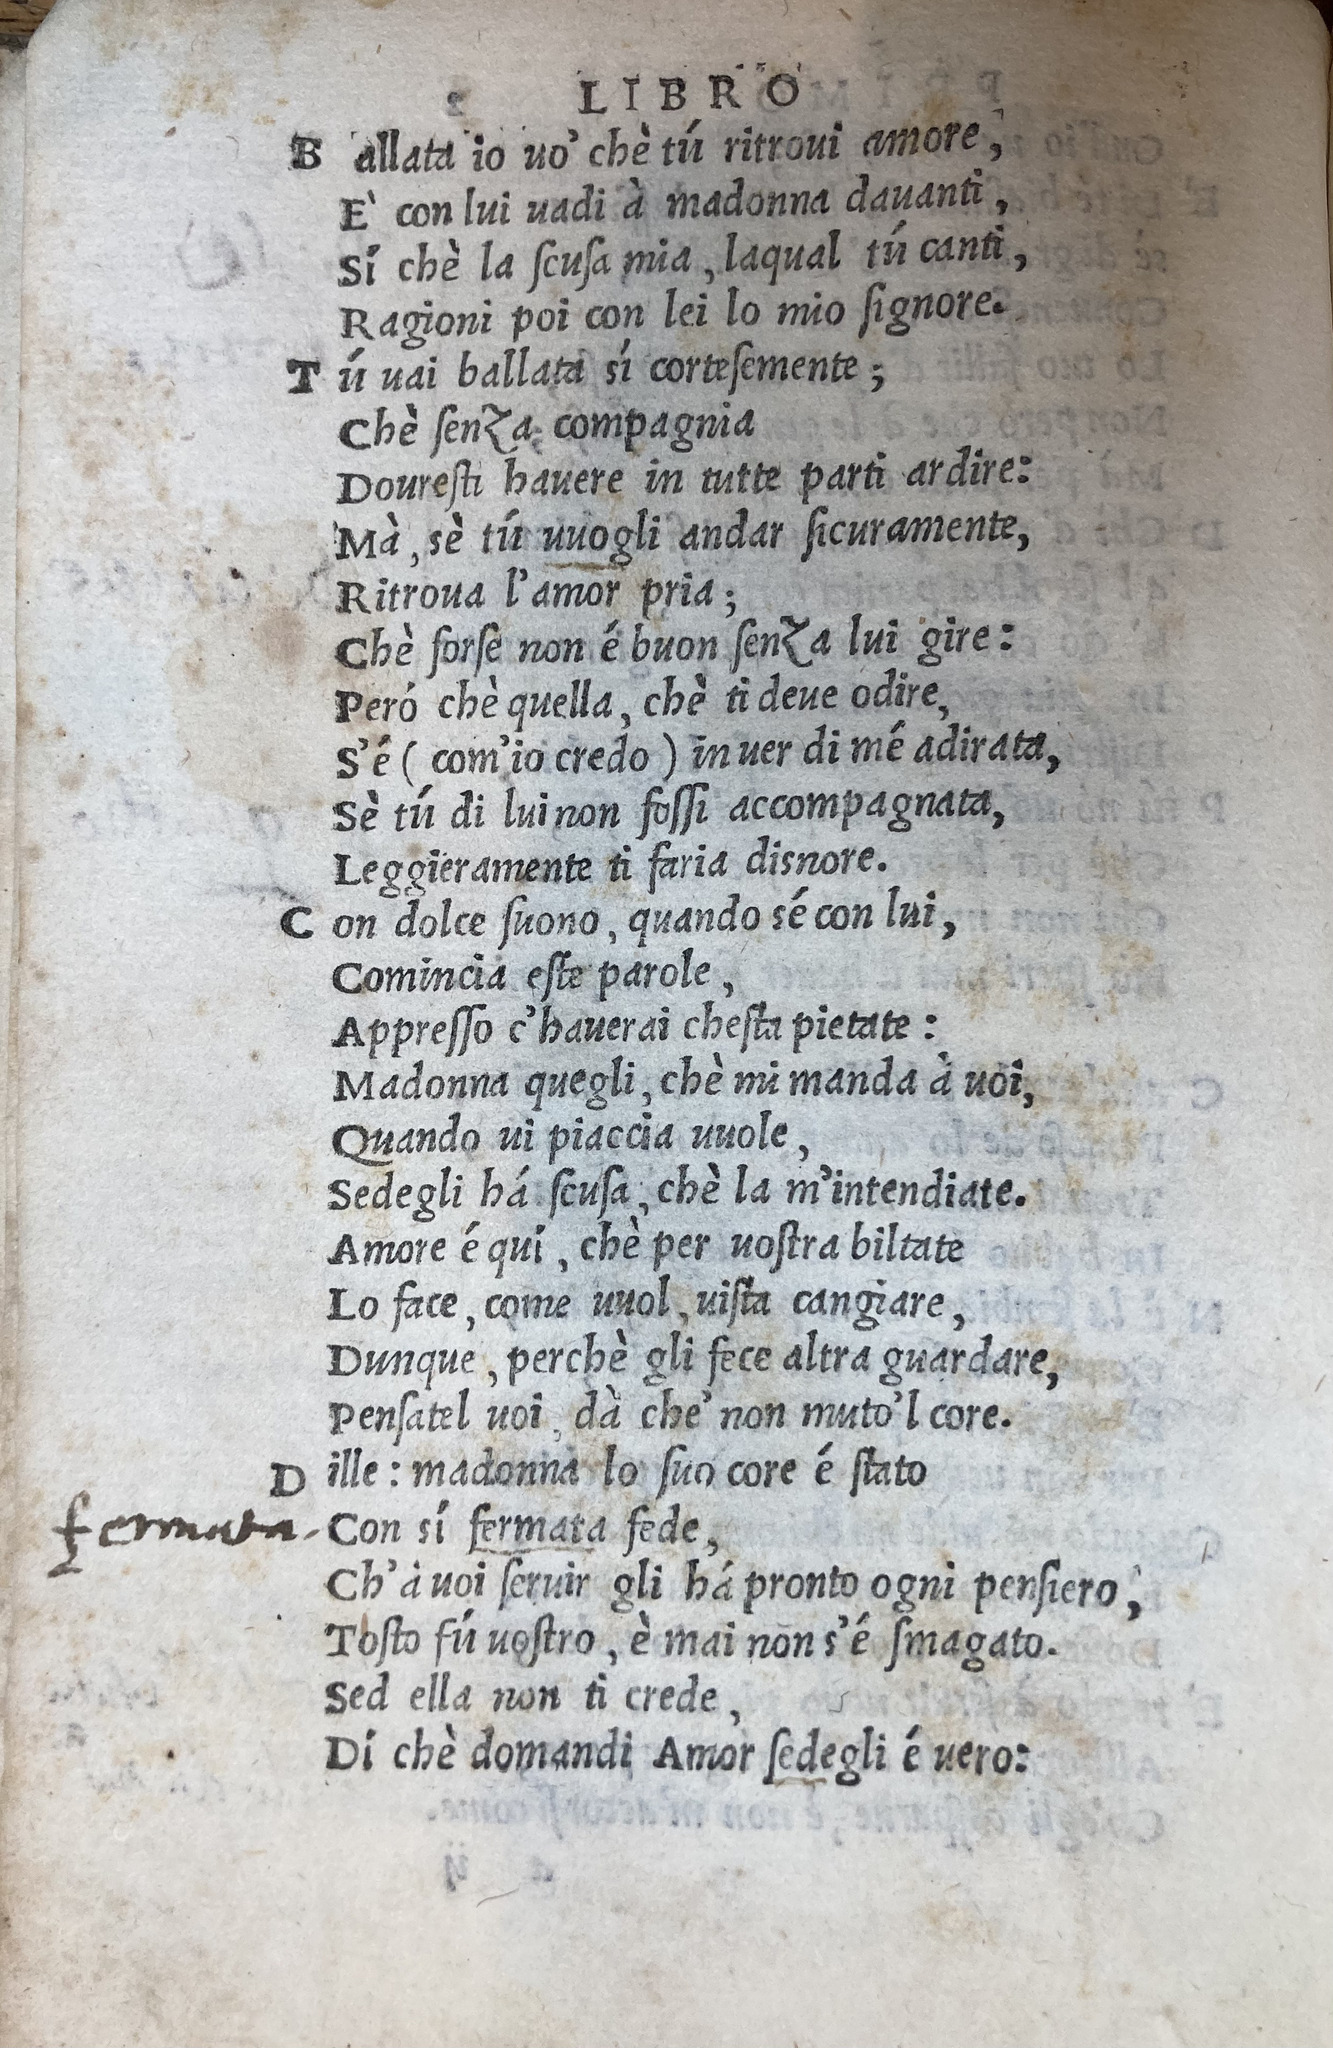 LIBRO
Ballata io uo' chè tú ritroui amore,
E' con lui uadi à madonna dauanti,
Sí chè la ſcuſa mia, laqual tú canti,
Ragioni poi con lei lo mio ſignore.
Tú uai ballata sí corteſemente;
Chè ſenza compagnia
Doureſti hauere in tutte parti ardire:
Mà, sè tú uuogli andar ſicuramente,
Ritroua l'amor pria;
Chè forſe non é buon ſenza lui gire:
Peró chè quella, chè ti deue odire,
S'é ( com'io credo ) in uer di mé adirata,
Sè tú di lui non foſſi accompagnata,
Leggieramente ti faria disnore.
Con dolce ſuono, quando sé con lui,
Comincia eſte parole,
Appreſſo c'hauerai cheſta pietate:
Madonna quegli, chè mi manda à uoi,
Quando ui piaccia uuole,
Sedegli há ſcuſa, chè la m'intendiate.
Amore é quí, chè per uoſtra biltate
Lo face, come uuol, uiſta cangiare,
Dunque, perchè gli fece altra guardare,
Penſatel uoi, dà che' non muto'l core.
Dille: madonna lo ſuo core é ſtato
fermata Con sí fermata fede,
Ch'à uoi ſeruir gli há pronto ogni penſiero,
Toſto fú uoſtro, è mai non s'é ſmagato.
Sed ella non ti crede,
Dí chè domandi Amor ſedegli é uero: